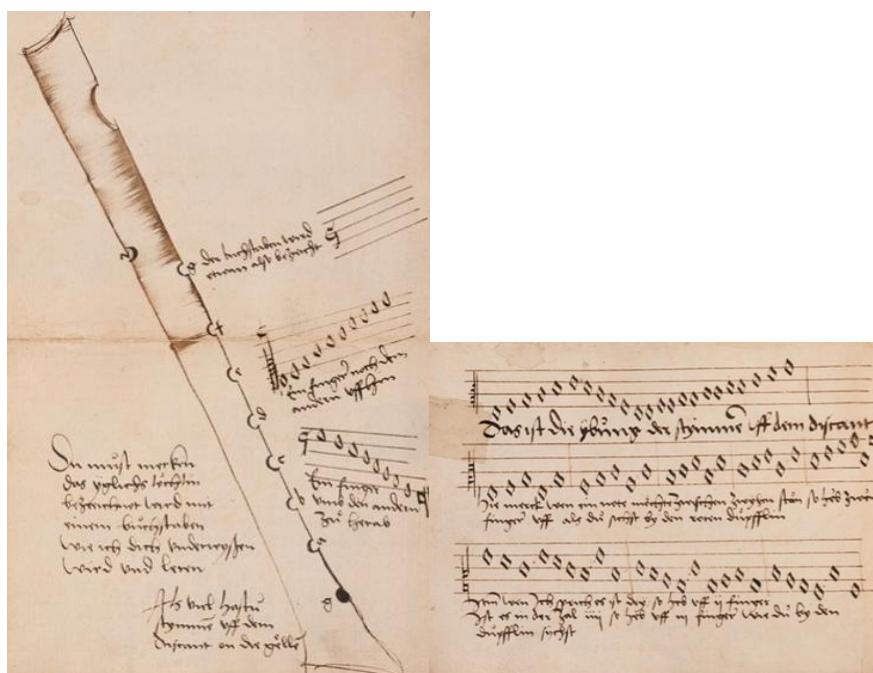 der buchstaben wird
etwan also bezeicht
g
f
e
d
c
b
a
g
Ein finger noch dem
andern uffhin
Ein finger
umb den andern
zů herab
Du must mercken
das ygliche löchlin
bezeichnet wird mit
einem bůchstaben
wie ich dich underwysßen
wird und leren
Als vil hastu
stymmen uff dem
Discant on die göllen
Das ist die ybung der stymmen uff dem discant
Hie merck wen ein note zwischen stůn so heb zwen
finger uff als du sichst by den roten düpfflin
Item wen Ich sprich es ist dry so heb uff ii finger
Ist es in der zal iiii so heb uff iii finger wie du by den
düpfflin sychst